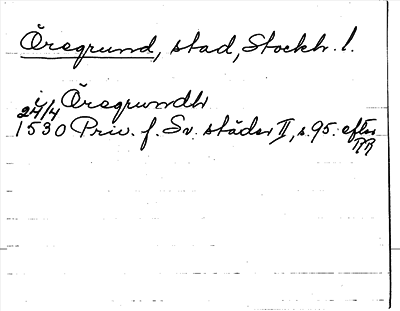 Öregrund, stad, Stockh. l.
i Öregrundh
24/4
1530 Priv. f. Sv. städer II, s. 95. efter
RR